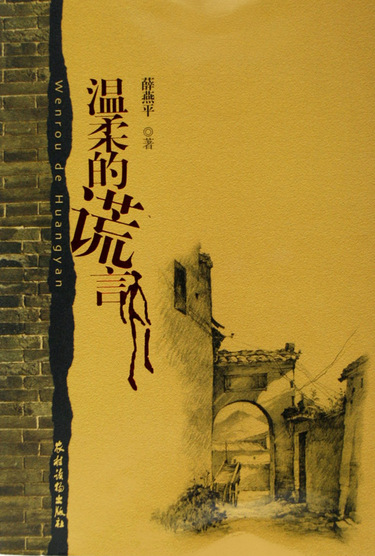 薛燕平 ◎著
温柔的谎言
Wenrou de Huangyan
农村读物出版社